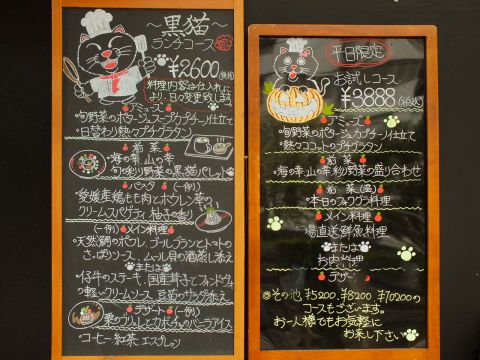 ～黒猫～
ランチコース
¥2,600(税抜)
料理内容は仕入れに
より、日々変更致します
アミューズ
旬野菜のポタージュカプチーノ仕立て
日替わり熱々プチグラタン
前菜
海の幸 山の幸
旬の彩り野菜の黒猫パレット
パスタ (一例)
愛媛産鶏もも肉とホウレン草の
クリームスパゲティ 柚子の香り
(一例) メイン料理
天然鯛のポワレ、ブールブランとトマトの
さっぱりソース、ムール貝の酒蒸し添え
または
仔牛のステーキ、国産茸子とフォンドヴォー
の軽いクリームソース
デザート (一例)
コーヒー 紅茶 エスプレッソ
平日限定
お試しコース
¥3888(税込)
アミューズ
旬野菜のポタージュカプチーノ仕立て
熱々ココットのプチグラタン
前菜
海の幸 山の幸 彩り野菜の盛り合わせ
前菜(温)
本日のフォワグラ料理
メイン料理
市場直送鮮魚料理
または
お肉料理
デザート
◎その他 ¥5200、¥8200 ¥10200の
コースもございます。
お一人様でもお気軽に
お越し下さい